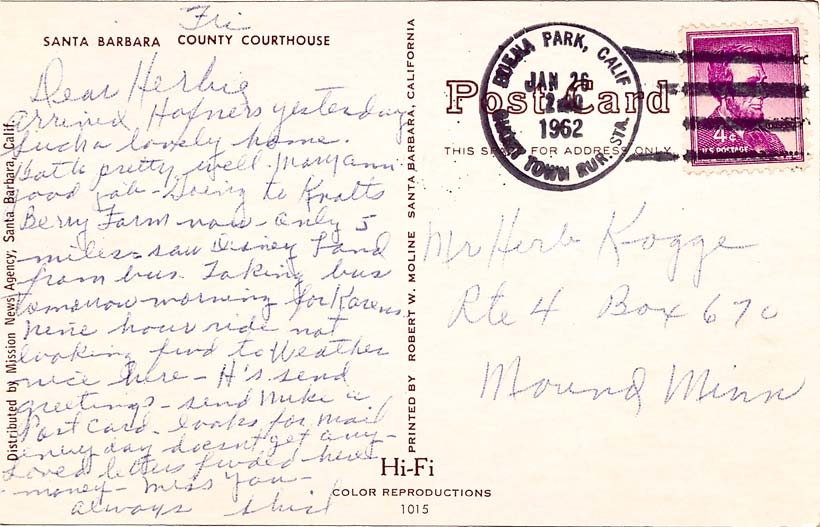 Fri
SANTA BARBARA COUNTY COURTHOUSE
Dear Herbie
arrived Hafners yesterday
such a lovely home.
both pretty well Maryann
good job - Going to Knotts
Berry Farm now - only 5
miles - saw Disney Land
from bus. Taking bus
tomorrow morning for Karens
nine hour ride not
looking fwd to Weather
nice here - H's send
greetings - send Mike a
Post Card - looks for mail
every day doesn't get any -
Loved letters fwded here
- money - miss you -
always
Distributed by Mission News Agency, Santa Barbara, Calif.
PRINTED BY ROBERT W. MOLINE SANTA BARBARA, CALIFORNIA
Post Card
THIS SPACE FOR ADDRESS ONLY
BUENA PARK, CALIF
JAN 26
1962
GHOST TOWN RUR. STA.
4¢
U.S. POSTAGE
Mr Herb Kogge
Rte 4 Box 670
Mound Minn
Hi-Fi
COLOR REPRODUCTIONS
1015